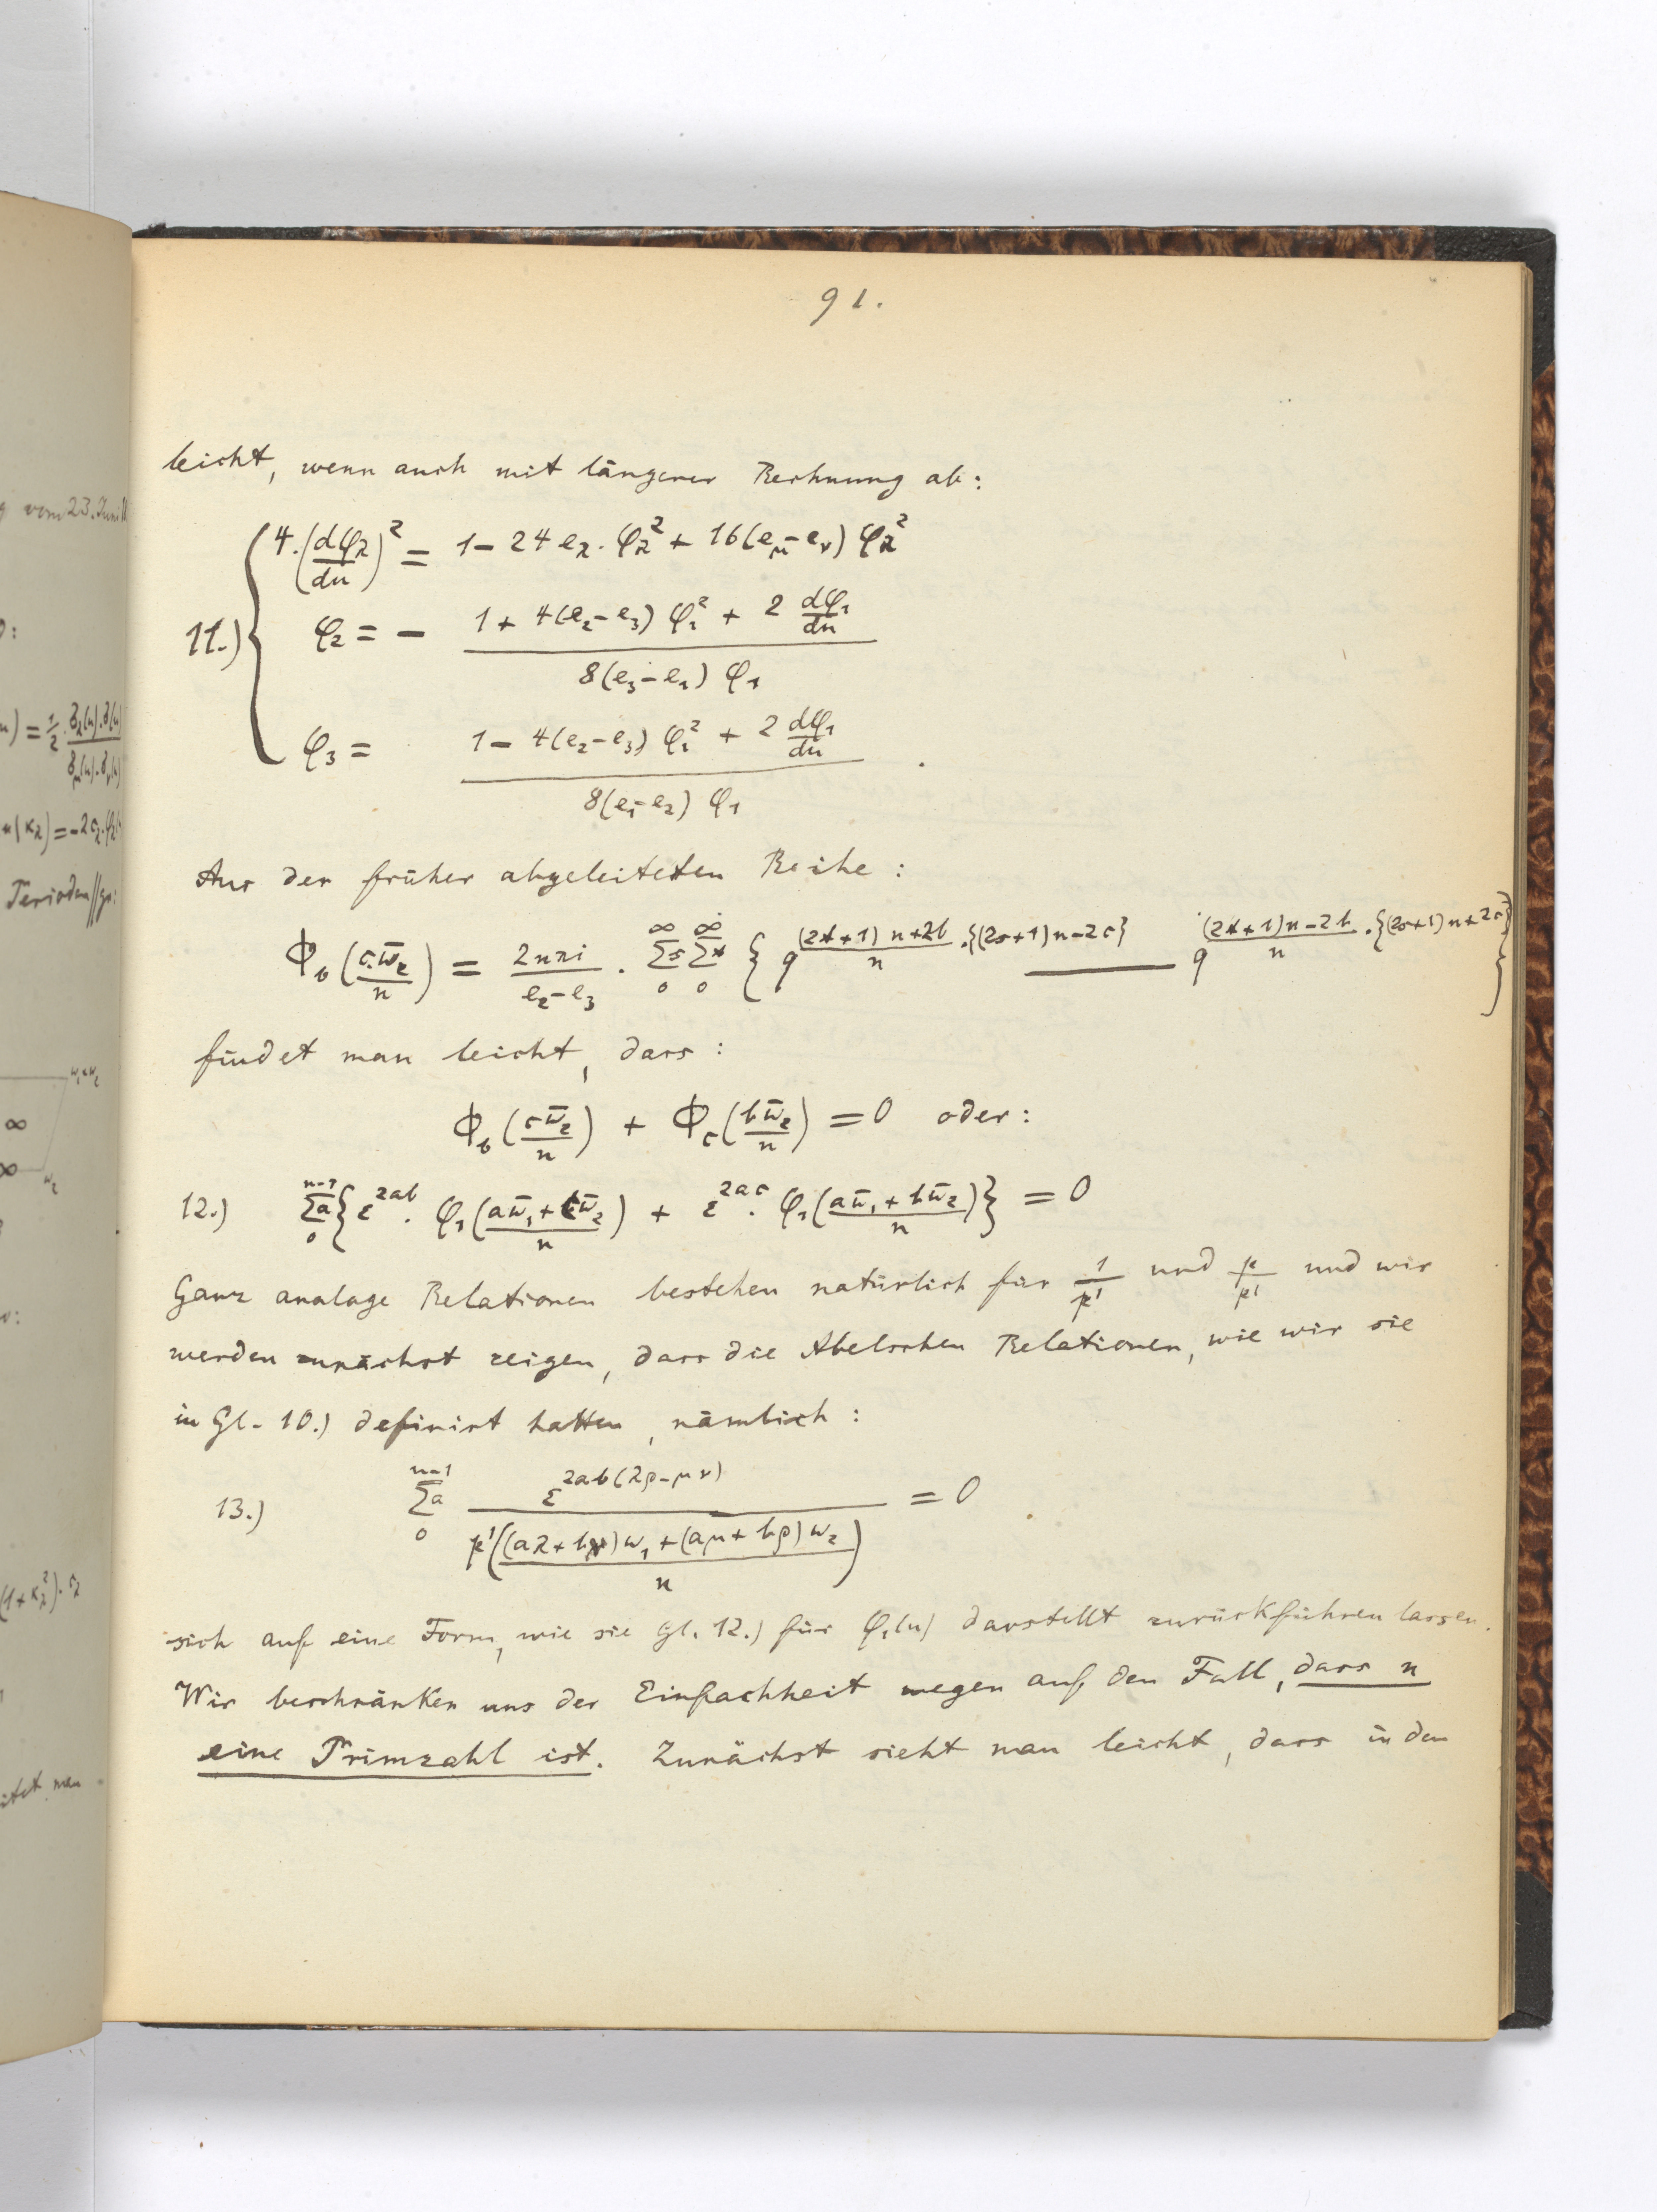 g vom 23. Juni
91.
leicht, wenn auch mit längerer Rechnung ab:
11.) { 4.(dφ_λ/du)² = 1 - 24 e_λ . φ_λ² + 16(e_μ - e_ν) φ_λ²
φ₂ = - (1 + 4(e₂-e₃) φ₁² + 2 dφ₁/du) / (8(e₃-e₁) φ₁)
φ₃ = (1 - 4(e₂-e₃) φ₁² + 2 dφ₁/du) / (8(e₁-e₂) φ₁) .
Aus der früher abgeleiteten Reihe:
Φ_b(c.ω̄₂/n) = 2nπi/(e₂-e₃) . Σs_0^∞ Σt_0^∞ { q^((2t+1)n+2b)/n .{(2s+1)n-2c} — q^((2t+1)n-2b)/n .{(2s+1)n+2c} }
findet man leicht, dass:
Φ_b(cω̄₂/n) + Φ_c(bω̄₂/n) = 0 oder:
12.) Σa_0^(n-1) { ε^2ab . φ₁((aω̄₁+cω̄₂)/n) + ε^2ac . φ₁((aω̄₁+bω̄₂)/n) } = 0
Ganz analoge Relationen bestehen natürlich für 1/p' und p/p' und wir
werden zunächst zeigen, dass die Abelschen Relationen, wie wir sie
in Gl. 10.) definirt hatten, nämlich:
13.) Σa_0^(n-1) ε^2ab(λρ-μν) / p'(((aλ+bν)ω₁+(aμ+bρ)ω₂)/n) = 0
sich auf eine Form, wie sie Gl. 12.) für φ₁(u) darstellt zurückführen lassen.
Wir beschränken uns der Einfachheit wegen auf den Fall, dass n
eine Primzahl ist. Zunächst sieht man leicht, dass in den